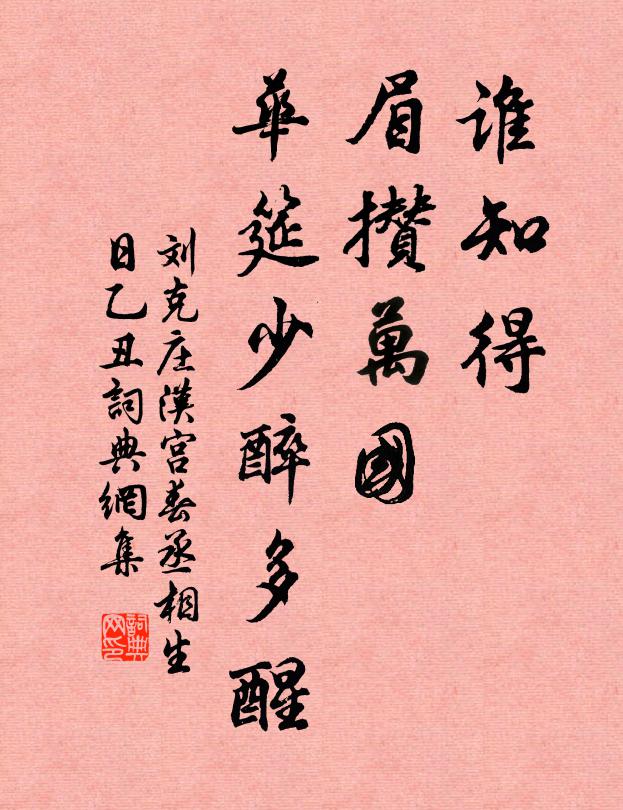 谁知得
眉攢萬國
華筵少醉多醒
刘克庄漢宮春丞相生
日乙丑詞典網集
詞典网印